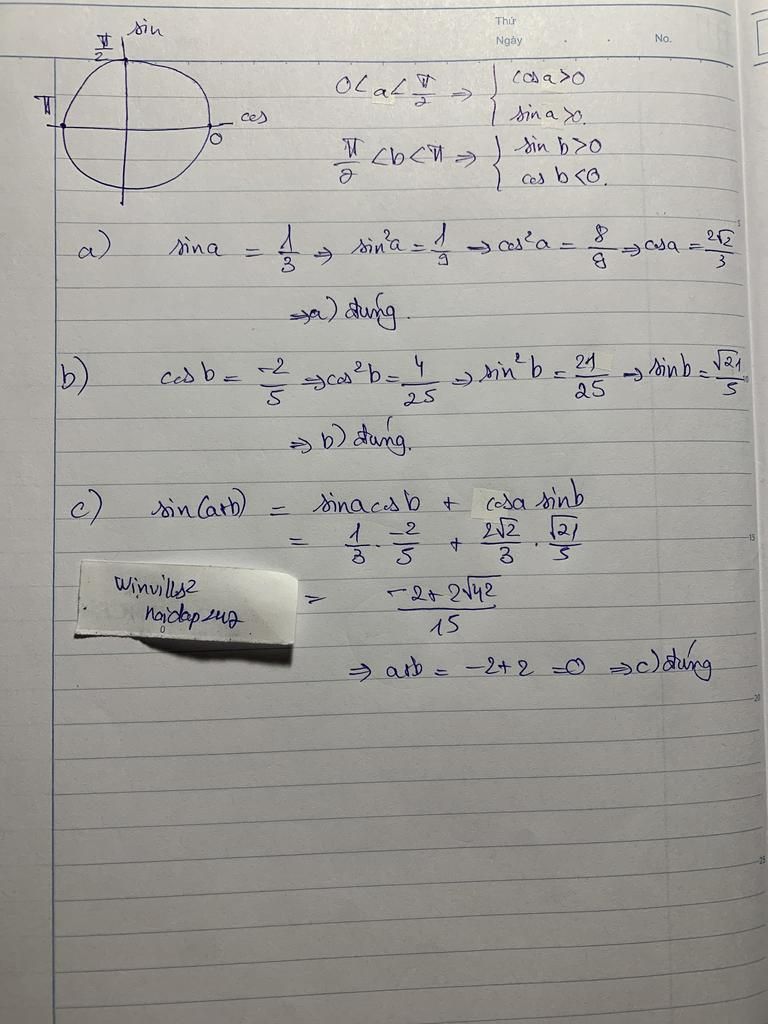 Thứ
Ngày . . No.
sin
π/2
π
cos
0
0 < a < π/2 ⇒ { cos a > 0
sin a > 0.
π/2 < b < π ⇒ { sin b > 0
cos b < 0.
a) sin a = 1/3 ⇒ sin²a = 1/9 ⇒ cos²a = 8/9 ⇒ cos a = 2√2/3
⇒ a) đúng.
b) cos b = -2/5 ⇒ cos²b = 4/25 ⇒ sin²b = 21/25 ⇒ sin b = √21/5
⇒ b) đúng.
c) sin(a+b) = sin a cos b + cos a sin b
= 1/3 . -2/5 + 2√2/3 . √21/5
= (-2+2√42)/15
⇒ a+b = -2+2 = 0 ⇒ c) đúng
5
10
15
20
25